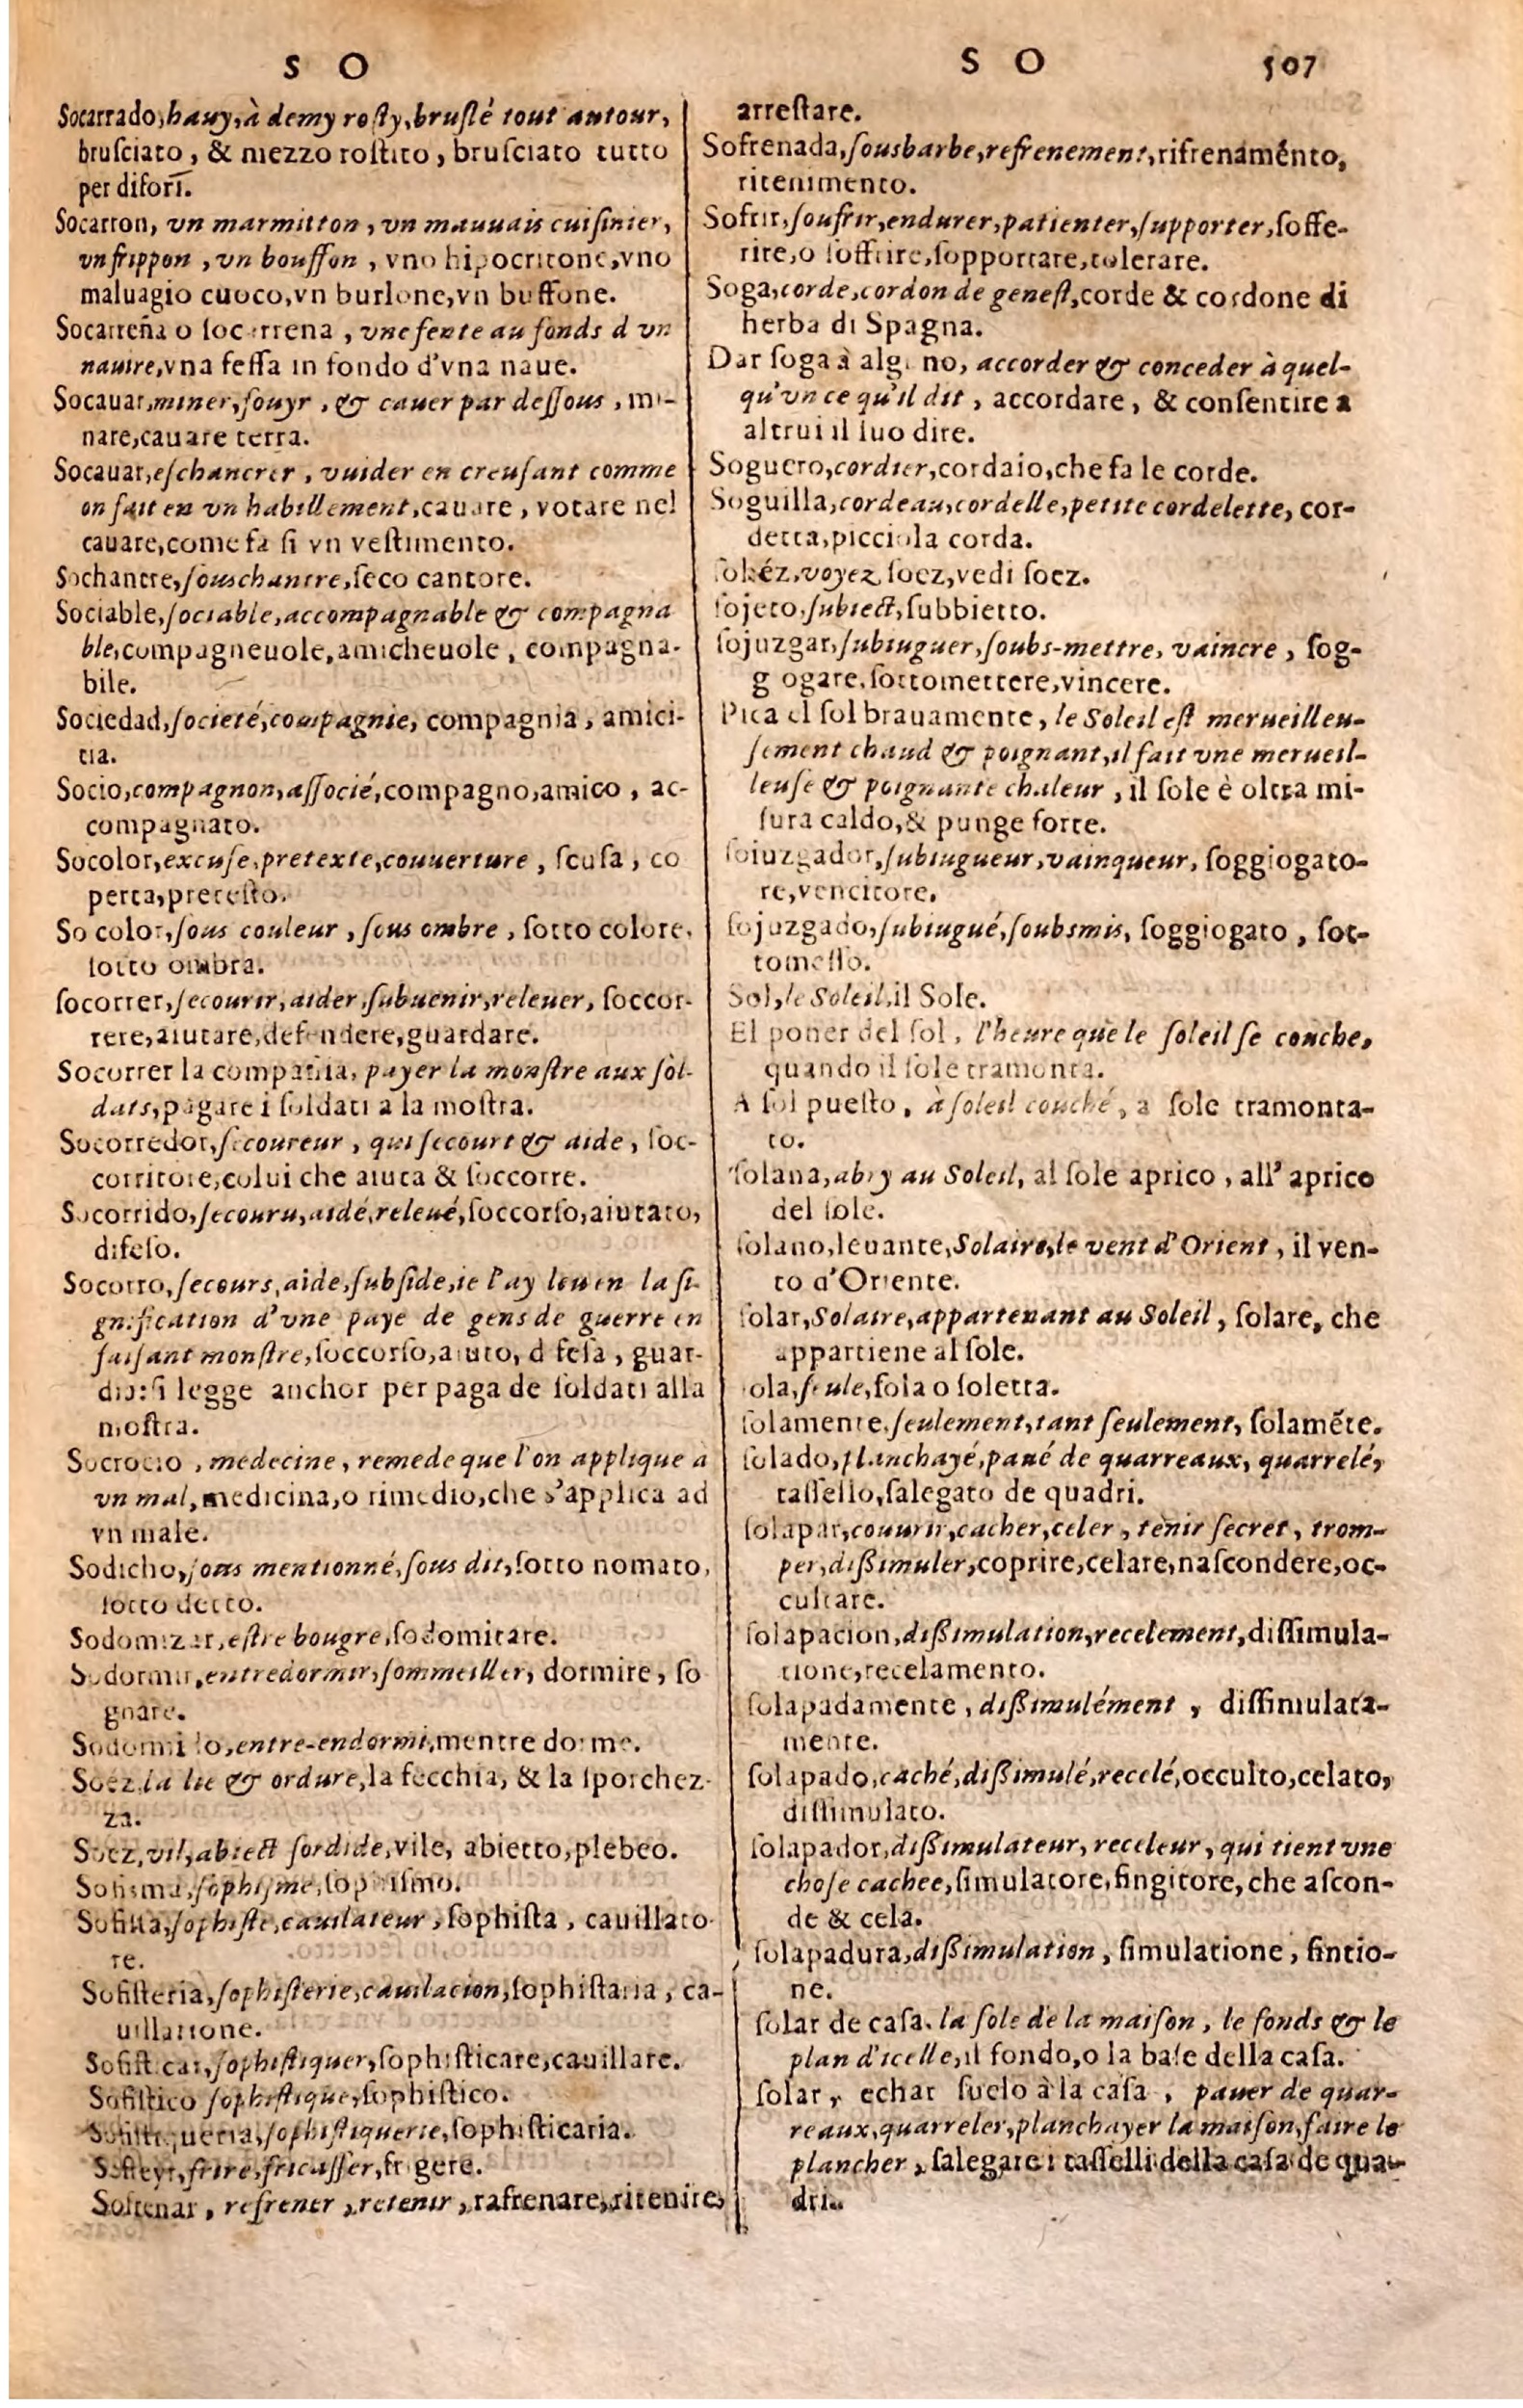 S O
Socarrado, hauy, à demy rosty, bruslé tout autour,
brusciato, & mezzo rostito, brusciato tutto
per difori.
Socarron, vn marmitton, vn mauuais cuisinier,
vn frippon, vn bouffon, vno hipocritone, vno
maluagio cuoco, vn burlone, vn buffone.
Socarreña o socarrena, vne fente au fonds d vn
nauire, vna fessa in fondo d'vna naue.
Socauar, miner, fouyr, & cauer par dessous, mi-
nare, cauare terra.
Socauar, eschancrer, vuider en creusant comme
on fait en vn habillement, cauare, votare nel
cauare, come fa si vn vestimento.
Sochantre, souschantre, seco cantore.
Sociable, sociable, accompagnable & compagna
ble, compagneuole, amicheuole, compagna-
bile.
Sociedad, societé, compagnie, compagnia, amici-
tia.
Socio, compagnon, associé, compagno, amico, ac-
compagnato.
Socolor, excuse, pretexte, couuerture, scusa, co
perta, pretesto.
So color, sous couleur, sous ombre, sotto colore,
sotto ombra.
socorrer, secourir, aider, subuenir, releuer, soccor-
rere, aiutare, defendere, guardare.
Socorrer la compañia, payer la monstre aux sol-
dats, pagare i soldati a la mostra.
Socorredor, secoureur, qui secourt & aide, soc-
corritore, colui che aiuta & soccorre.
Socorrido, secouru, aidé, releué, soccorso, aiutato,
difeso.
Socorro, secours, aide, subside, ie l'ay leu en la si-
gnification d'vne paye de gens de guerre en
faisant monstre, soccorso, aiuto, difesa, guar-
dia: si legge anchor per paga de soldati alla
mostra.
Socrocio, medecine, remede que l'on applique à
vn mal, medicina, o rimedio, che s'applica ad
vn male.
Sodicho, sous mentionné, sous dit, sotto nomato,
sotto detto.
Sodomizar, estre bougre, sodomitare.
Sodormir, entredormir, sommeiller, dormire, so
gnare.
Sodormido, entre-endormi, mentre dorme.
Soez, la lie & ordure, la fecchia, & la sporchez-
za.
Soez, vil, abiect sordide, vile, abietto, plebeo.
Sofisma, sophisme, sophismo.
Sofista, sophiste, cauilateur, sophista, cauillato-
re.
Sofisteria, sophisterie, cauilacion, sophistaria, ca-
uillatione.
Sofisticar, sophistiquer, sophisticare, cauillare.
Sofistico sophistique, sophistico.
Sofistiqueria, sophistiquerie, sophisticaria.
Sofreyr, frire, fricasser, frigere.
Sofrenar, refrener, retenir, rafrenare, ritenire,
S O 507
arrestare.
Sofrenada, sousbarbe, refrenement, rifrenamẽnto,
ritenimento.
Sofrir, soufrir, endurer, patienter, supporter, soffe-
rire, o soffrire, sopportare, tolerare.
Soga, corde, cordon de genest, corde & cordone di
herba di Spagna.
Dar soga à alguno, accorder & conceder à quel-
qu'vn ce qu'il dit, accordare, & consentire a
altrui il suo dire.
Soguero, cordier, cordaio, che fa le corde.
Soguilla, cordeau, cordelle, petite cordelette, cor-
detta, picciola corda.
sohéz, voyez soez, vedi soez.
sojeto, subiect, subbietto.
sojuzgar, subiuguer, soubs-mettre, vaincre, sog-
g ogare, sottomettere, vincere.
Pica el sol brauamente, le Soleil est merueilleu-
sement chaud & poignant, il fait vne merueil-
leuse & poignante chaleur, il sole è oltra mi-
sura caldo, & punge forte.
soiuzgador, subiugueur, vainqueur, soggiogato-
re, vencitore.
sojuzgado, subiugué, soubsmis, soggiogato, sot-
tomesso.
Sol, le Soleil, il Sole.
El poner del sol, l'heure que le soleil se couche,
quando il sole tramonta.
A sol puesto, à soleil couché, a sole tramonta-
to.
solana, abry au Soleil, al sole aprico, all' aprico
del sole.
solano, leuante, Solaire, le vent d'Orient, il ven-
to d'Oriente.
solar, Solaire, appartenant au Soleil, solare, che
appartiene al sole.
sola, seule, sola o soletta.
solamente, seulement, tant seulement, solamẽte.
solado, planchayé, paué de quarreaux, quarrelé,
tassello, salegato de quadri.
solapar, couurir, cacher, celer, tenir secret, trom-
per, dissimuler, coprire, celare, nascondere, oc-
cultare.
solapacion, dissimulation, recelement, dissimula-
tione, recelamento.
solapadamente, dissimulément, dissimulata-
mente.
solapado, caché, dissimulé, recelé, occulto, celato,
dissimulato.
solapador, dissimulateur, receleur, qui tient vne
chose cachee, simulatore, fingitore, che ascon-
de & cela.
solapadura, dissimulation, simulatione, fintio-
ne.
solar de casa, la sole de la maison, le fonds & le
plan d'icelle, il fondo, o la base della casa.
solar, echar suelo à la casa, pauer de quar-
reaux, quarreler, planchayer la maison, faire le
plancher, salegare i tasselli della casa de qua-
dri.